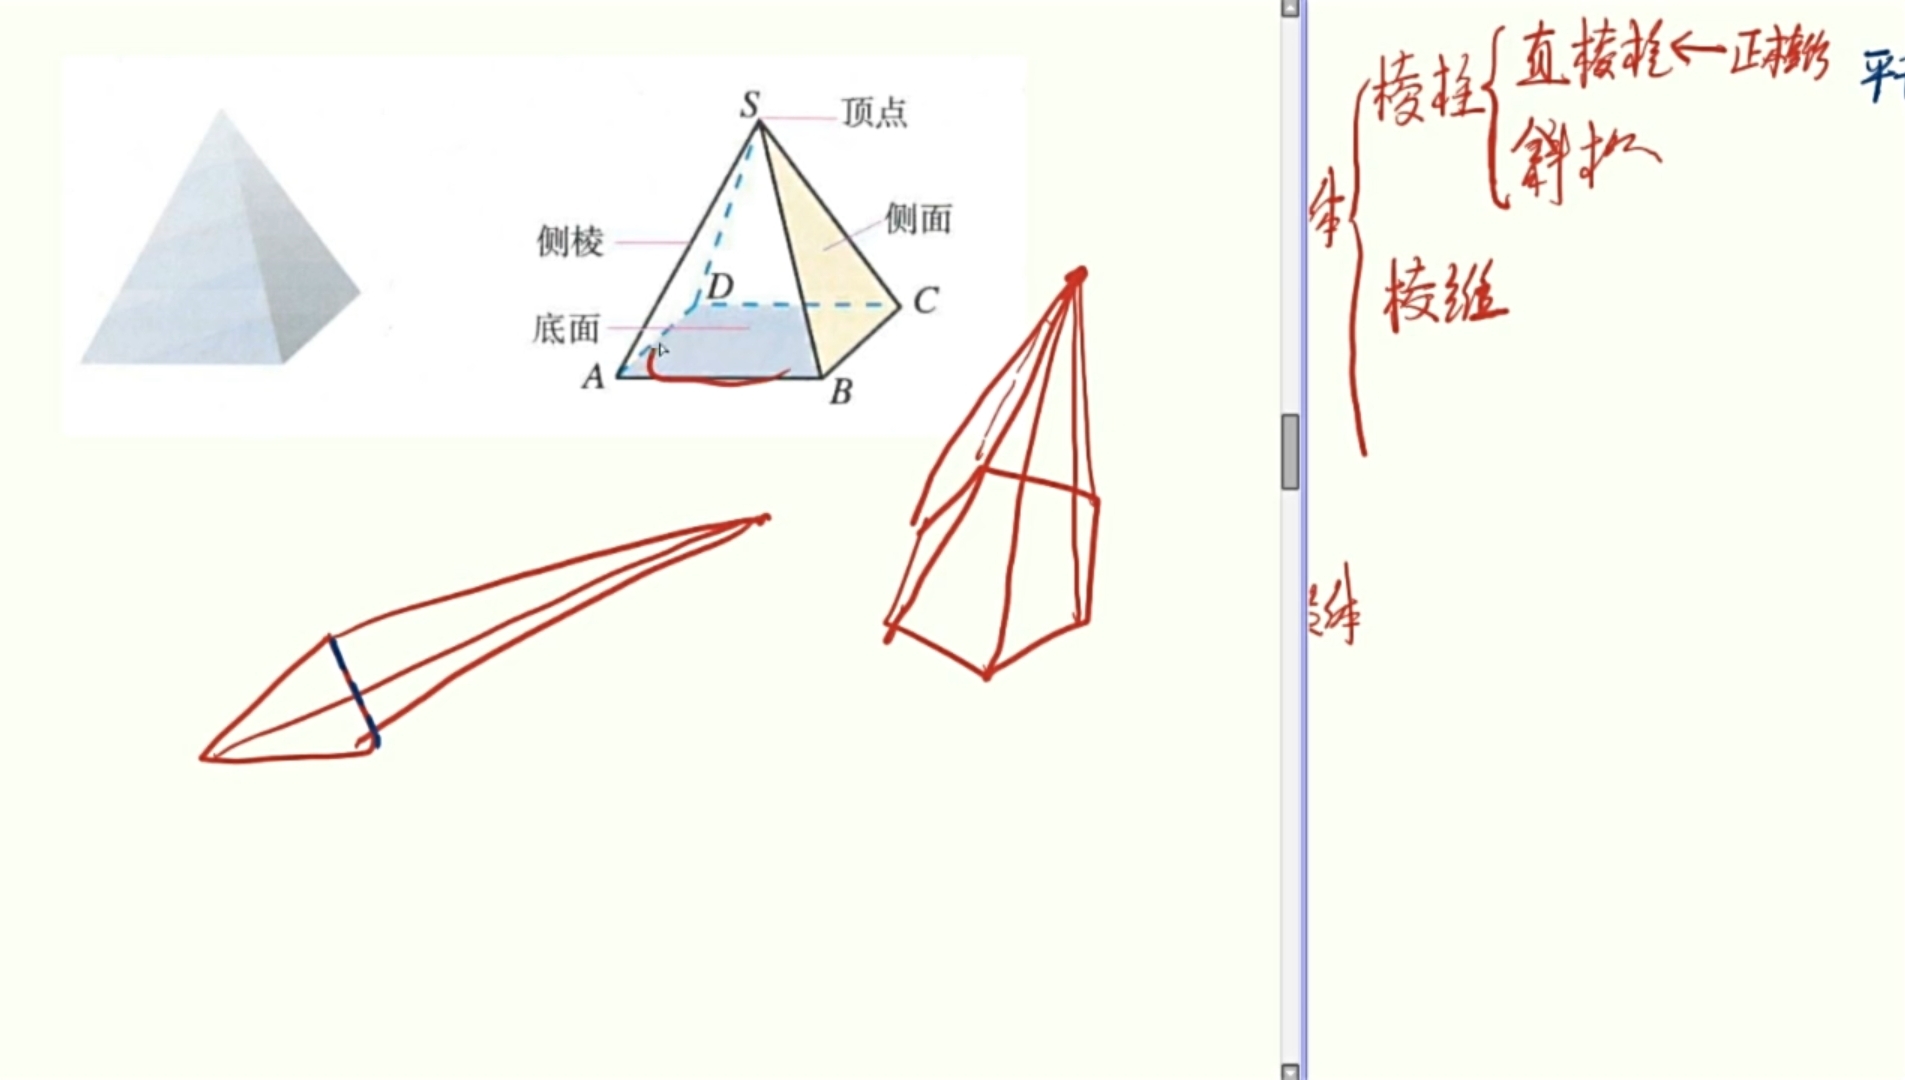 S 顶点
侧棱
侧面
D
C
底面
A
B
棱柱
直棱柱←正棱柱
斜
棱锥
体
体
平